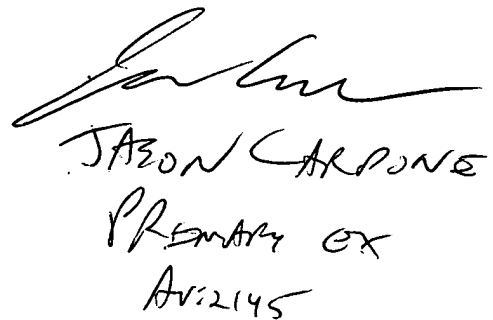 JASON CARDONE
PRIMARY EX
AV:2145